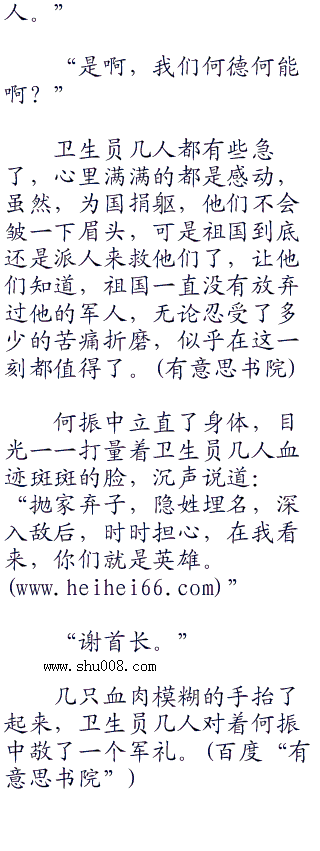 人。”
“是啊，我们何德何能
啊？”
卫生员几人都有些急
了，心里满满的都是感动，
虽然，为国捐躯，他们不会
皱一下眉头，可是祖国到底
还是派人来救他们了，让他
们知道，祖国一直没有放弃
过他的军人，无论忍受了多
少的苦痛折磨，似乎在这一
刻都值得了。(有意思书院)
何振中立直了身体，目
光一一打量着卫生员几人血
迹斑斑的脸，沉声说道：
“抛家弃子，隐姓埋名，深
入敌后，时时担心，在我看
来，你们就是英雄。
(www.heihei66.com)”
“谢首长。”
www.shu008.com
几只血肉模糊的手抬了
起来，卫生员几人对着何振
中敬了一个军礼。(百度“有
意思书院”)